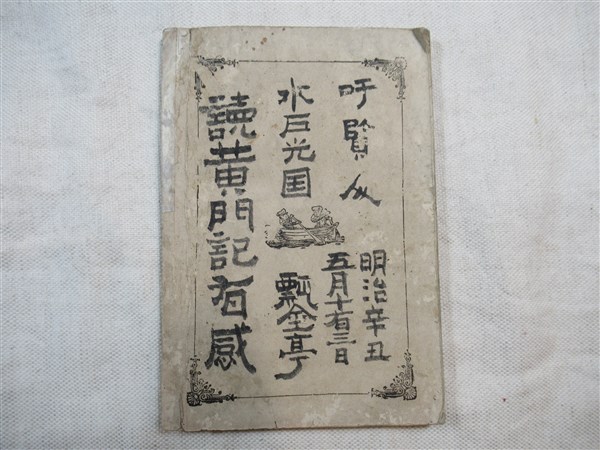 吁賢
明治辛丑
五月十有三日
水戸光国
瓢金亭
讀黄門記有感